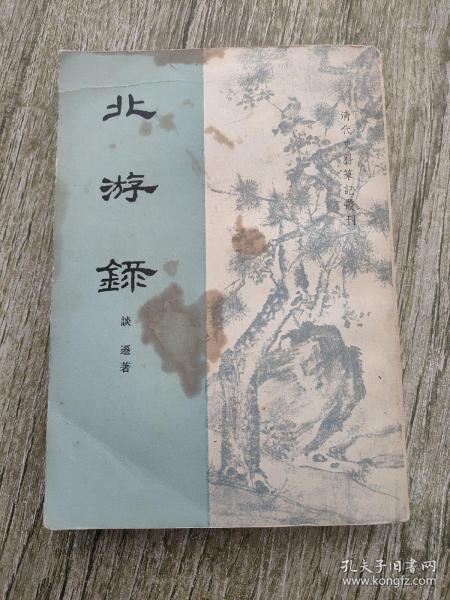 北游錄
談遷著
清代史料筆記叢刊
孔夫子旧书网
www.kongfz.com